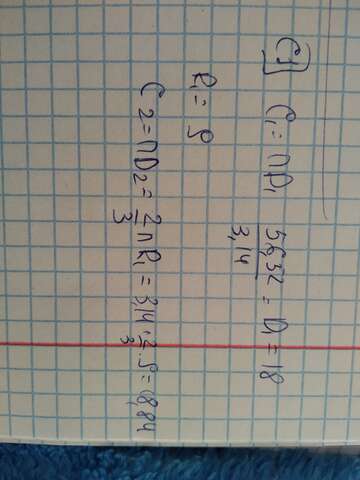 C1
C₁ = ПD₁ 56,52/3,14 = D₁ = 18
R₁ = 9
C₂ = ПD₂ = 2/3 П R₁ = 3,14 · 2/3 · 9 = 18,84